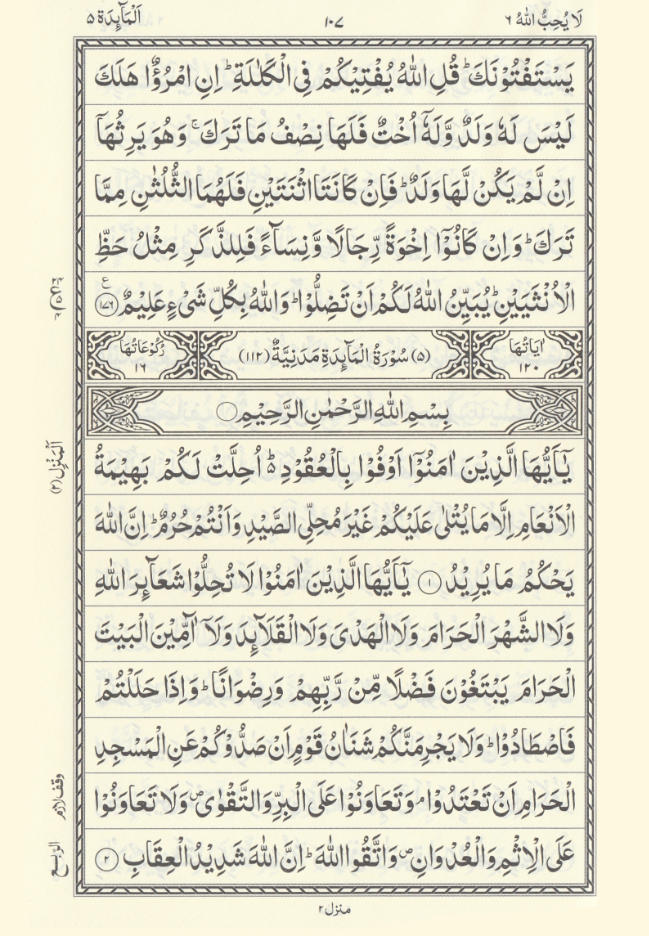 لَا يُحِبُّ اللهُ ٦
١٠٧
اَلْمَآئِدَة ٥
يَسْتَفْتُوْنَكَ ؕ قُلِ اللّٰهُ يُفْتِيْكُمْ فِي الْكَلٰلَةِ ؕ اِنِ امْرُؤٌا هَلَكَ
لَيْسَ لَهٗ وَلَدٌ وَّلَهٗۤ اُخْتٌ فَلَهَا نِصْفُ مَا تَرَكَ ۚ وَهُوَ يَرِثُهَاۤ
اِنْ لَّمْ يَكُنْ لَّهَا وَلَدٌ ؕ فَاِنْ كَانَتَا اثْنَتَيْنِ فَلَهُمَا الثُّلُثٰنِ مِمَّا
تَرَكَ ؕ وَاِنْ كَانُوْۤا اِخْوَةً رِّجَالًا وَّنِسَآءً فَلِلذَّكَرِ مِثْلُ حَظِّ
الْاُنْثَيَيْنِ ؕ يُبَيِّنُ اللّٰهُ لَكُمْ اَنْ تَضِلُّوْا ؕ وَاللّٰهُ بِكُلِّ شَيْءٍ عَلِيْمٌ ۝١٧٦ ع
اٰيَاتُهَا ١٢٠
(٥) سُوْرَةُ الْمَآئِدَةِ مَدَنِيَّةٌ (١١٢)
رُكُوْعَاتُهَا ١٦
بِسْمِ اللّٰهِ الرَّحْمٰنِ الرَّحِيْمِ
يٰۤاَيُّهَا الَّذِيْنَ اٰمَنُوْۤا اَوْفُوْا بِالْعُقُوْدِ ؕ۬ اُحِلَّتْ لَكُمْ بَهِيْمَةُ
الْاَنْعَامِ اِلَّا مَا يُتْلٰى عَلَيْكُمْ غَيْرَ مُحِلِّي الصَّيْدِ وَاَنْتُمْ حُرُمٌ ؕ اِنَّ اللّٰهَ
يَحْكُمُ مَا يُرِيْدُ ۝١ يٰۤاَيُّهَا الَّذِيْنَ اٰمَنُوْا لَا تُحِلُّوْا شَعَآئِرَ اللّٰهِ
وَلَا الشَّهْرَ الْحَرَامَ وَلَا الْهَدْيَ وَلَا الْقَلَآئِدَ وَلَاۤ آٰمِّيْنَ الْبَيْتَ
الْحَرَامَ يَبْتَغُوْنَ فَضْلًا مِّنْ رَّبِّهِمْ وَرِضْوَانًا ؕ وَاِذَا حَلَلْتُمْ
فَاصْطَادُوْا ؕ وَلَا يَجْرِمَنَّكُمْ شَنَاٰنُ قَوْمٍ اَنْ صَدُّوْكُمْ عَنِ الْمَسْجِدِ
الْحَرَامِ اَنْ تَعْتَدُوْا ۘ وَتَعَاوَنُوْا عَلَى الْبِرِّ وَالتَّقْوٰى ۪ وَلَا تَعَاوَنُوْا
عَلَى الْاِثْمِ وَالْعُدْوَانِ ۪ وَاتَّقُوا اللّٰهَ ؕ اِنَّ اللّٰهَ شَدِيْدُ الْعِقَابِ ۝٢
اَلْمَنْزِل (٢)
وقف لازم
الربع
منزل ٢